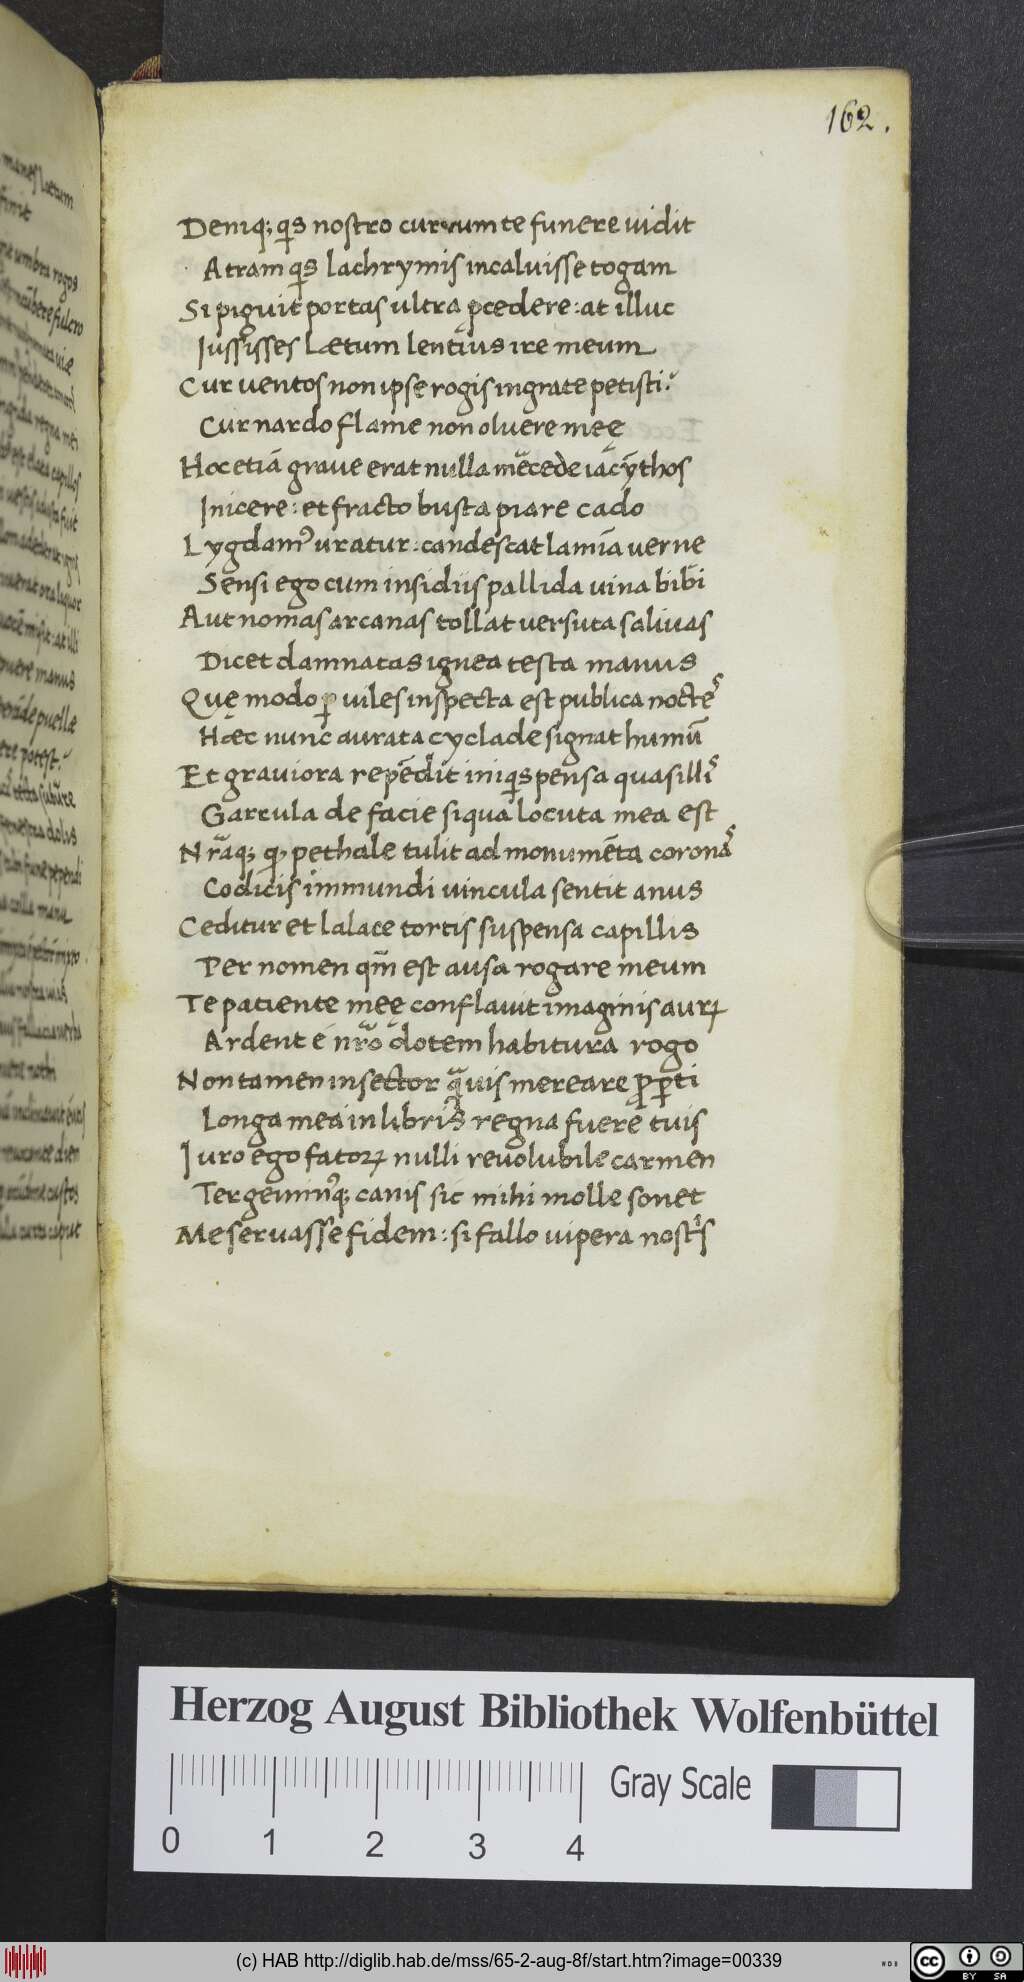 162.
Deniq; qs nostro curvum te funere uidit
Atram qs lachrymis incaluisse togam
Si piguit portas ultra pcedere: at illuc
Iussisses Lætum lentius ire meum
Cur uentos non ipse rogis ingrate petisti?
Cur nardo flame non oluere meę
Hoc etiā graue erat nulla mercede iacȳthos
Inicere: et fracto busta piare cado
Lygdam9 uratur: candescat lamīa uerne
Sensi ego cum insidiis pallida uina bibi
Aut nomas arcanas tollat versuta salivas
Dicet damnatas ignea testa manus
Quę modo p uiles inspecta est publica noctes
Hæc nunc aurata cyclade signat humū
Et graviora repēdit iniqs pensa quasillis
Garcula de facie siqua locuta mea est
Nraq; q pethale tulit ad monumēta coronas
Codicis immundi uincula sentit anus
Ceditur et lalace tortis suspensa capillis
Per nomen qm est ausa rogare meum
Te patiente meę conflauit imaginis aurꝝ
Ardent é nro dotem habitura rogo
Non tamen insector quis mereare pperti
Longa mea in libris regna fuere tuis
Iuro ego fatoꝝ nulli revolubile carmen
Tergemin9q; canis sic mihi molle sonet
Me servasse fidem: si fallo vipera nostris
Herzog August Bibliothek Wolfenbüttel
0 1 2 3 4
Gray Scale
(c) HAB http://diglib.hab.de/mss/65-2-aug-8f/start.htm?image=00339
WDB
cc BY SA